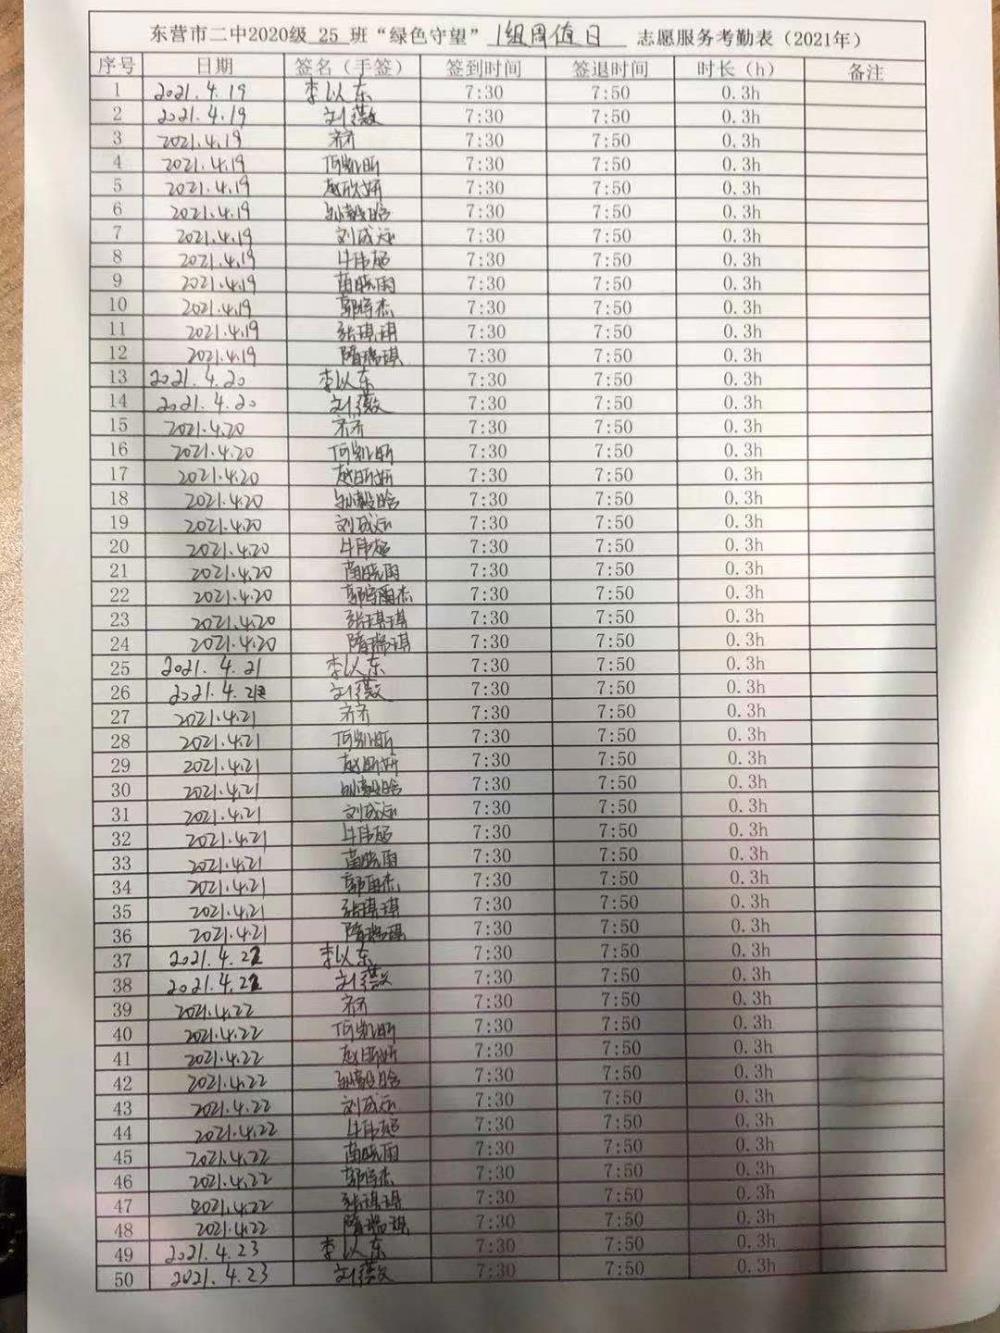 东营市二中2020级 25 班“绿色守望” 1组周值日 志愿服务考勤表（2021年）
序号 日期 签名（手签） 签到时间 签退时间 时长（h） 备注
1 2021.4.19 李以东 7:30 7:50 0.3h
2 2021.4.19 刘薇 7:30 7:50 0.3h
3 2021.4.19 齐齐 7:30 7:50 0.3h
4 2021.4.19 何凯昕 7:30 7:50 0.3h
5 2021.4.19 赵欣妍 7:30 7:50 0.3h
6 2021.4.19 7:30 7:50 0.3h
7 2021.4.19 刘成 7:30 7:50 0.3h
8 2021.4.19 牛伟超 7:30 7:50 0.3h
9 2021.4.19 苗晓雨 7:30 7:50 0.3h
10 2021.4.19 7:30 7:50 0.3h
11 2021.4.19 张琪琪 7:30 7:50 0.3h
12 2021.4.19 隋瑞琪 7:30 7:50 0.3h
13 2021.4.20 李以东 7:30 7:50 0.3h
14 2021.4.20 刘薇 7:30 7:50 0.3h
15 2021.4.20 齐齐 7:30 7:50 0.3h
16 2021.4.20 何凯昕 7:30 7:50 0.3h
17 2021.4.20 赵昕妍 7:30 7:50 0.3h
18 2021.4.20 7:30 7:50 0.3h
19 2021.4.20 刘成 7:30 7:50 0.3h
20 2021.4.20 牛伟超 7:30 7:50 0.3h
21 2021.4.20 苗晓雨 7:30 7:50 0.3h
22 2021.4.20 7:30 7:50 0.3h
23 2021.4.20 张琪琪 7:30 7:50 0.3h
24 2021.4.20 隋瑞琪 7:30 7:50 0.3h
25 2021.4.21 李以东 7:30 7:50 0.3h
26 2021.4.21 刘薇 7:30 7:50 0.3h
27 2021.4.21 齐齐 7:30 7:50 0.3h
28 2021.4.21 何凯昕 7:30 7:50 0.3h
29 2021.4.21 赵昕妍 7:30 7:50 0.3h
30 2021.4.21 7:30 7:50 0.3h
31 2021.4.21 刘成 7:30 7:50 0.3h
32 2021.4.21 牛伟超 7:30 7:50 0.3h
33 2021.4.21 苗晓雨 7:30 7:50 0.3h
34 2021.4.21 7:30 7:50 0.3h
35 2021.4.21 张琪琪 7:30 7:50 0.3h
36 2021.4.21 隋瑞琪 7:30 7:50 0.3h
37 2021.4.22 李以东 7:30 7:50 0.3h
38 2021.4.22 刘薇 7:30 7:50 0.3h
39 2021.4.22 齐齐 7:30 7:50 0.3h
40 2021.4.22 何凯昕 7:30 7:50 0.3h
41 2021.4.22 赵昕妍 7:30 7:50 0.3h
42 2021.4.22 7:30 7:50 0.3h
43 2021.4.22 刘成 7:30 7:50 0.3h
44 2021.4.22 牛伟超 7:30 7:50 0.3h
45 2021.4.22 苗晓雨 7:30 7:50 0.3h
46 2021.4.22 7:30 7:50 0.3h
47 2021.4.22 张琪琪 7:30 7:50 0.3h
48 2021.4.22 隋瑞琪 7:30 7:50 0.3h
49 2021.4.23 李以东 7:30 7:50 0.3h
50 2021.4.23 刘薇 7:30 7:50 0.3h